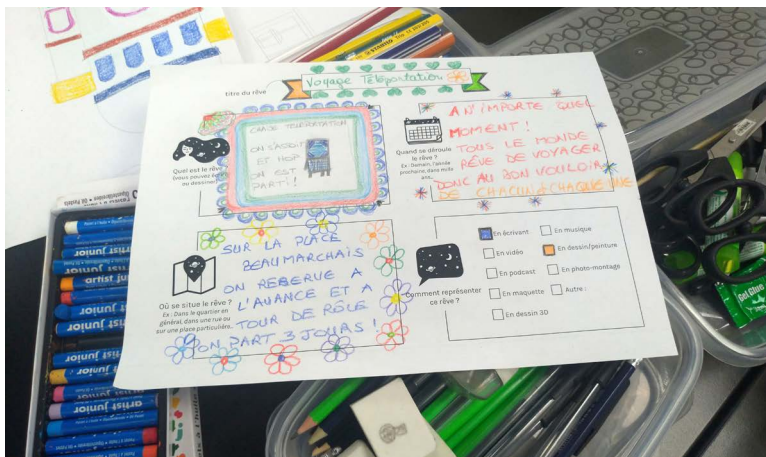 titre du rêve
Voyage Téléportation
Quel est le rêve ?
CHAISE TELEPORTATION
ON S'ASSOIT
ET HOP
ON EST
PARTI !
Quand se déroule
le rêve ?
Ex : Demain, l'année
prochaine, dans mille
ans...
A N'IMPORTE QUEL
MOMENT !
TOUS LE MONDE
RÊVE DE VOYAGER
DONC AU BON VOULOIR
DE CHACUN & CHAQUE UNE
Où se situe le rêve ?
Ex : Dans le quartier en
général, dans une rue ou
sur une place particulière...
SUR LA PLACE
BEAUMARCHAIS
ON RESERVE A
L'AVANCE ET A
TOUR DE RÔLE
ON PART 3 JOURS !
Comment représenter
ce rêve ?
En écrivant
En musique
En vidéo
En dessin/peinture
En podcast
En photo-montage
En maquette
Autre :
En dessin 3D
Gel Glue
artist junior
artist junior
artist junior
artist junior